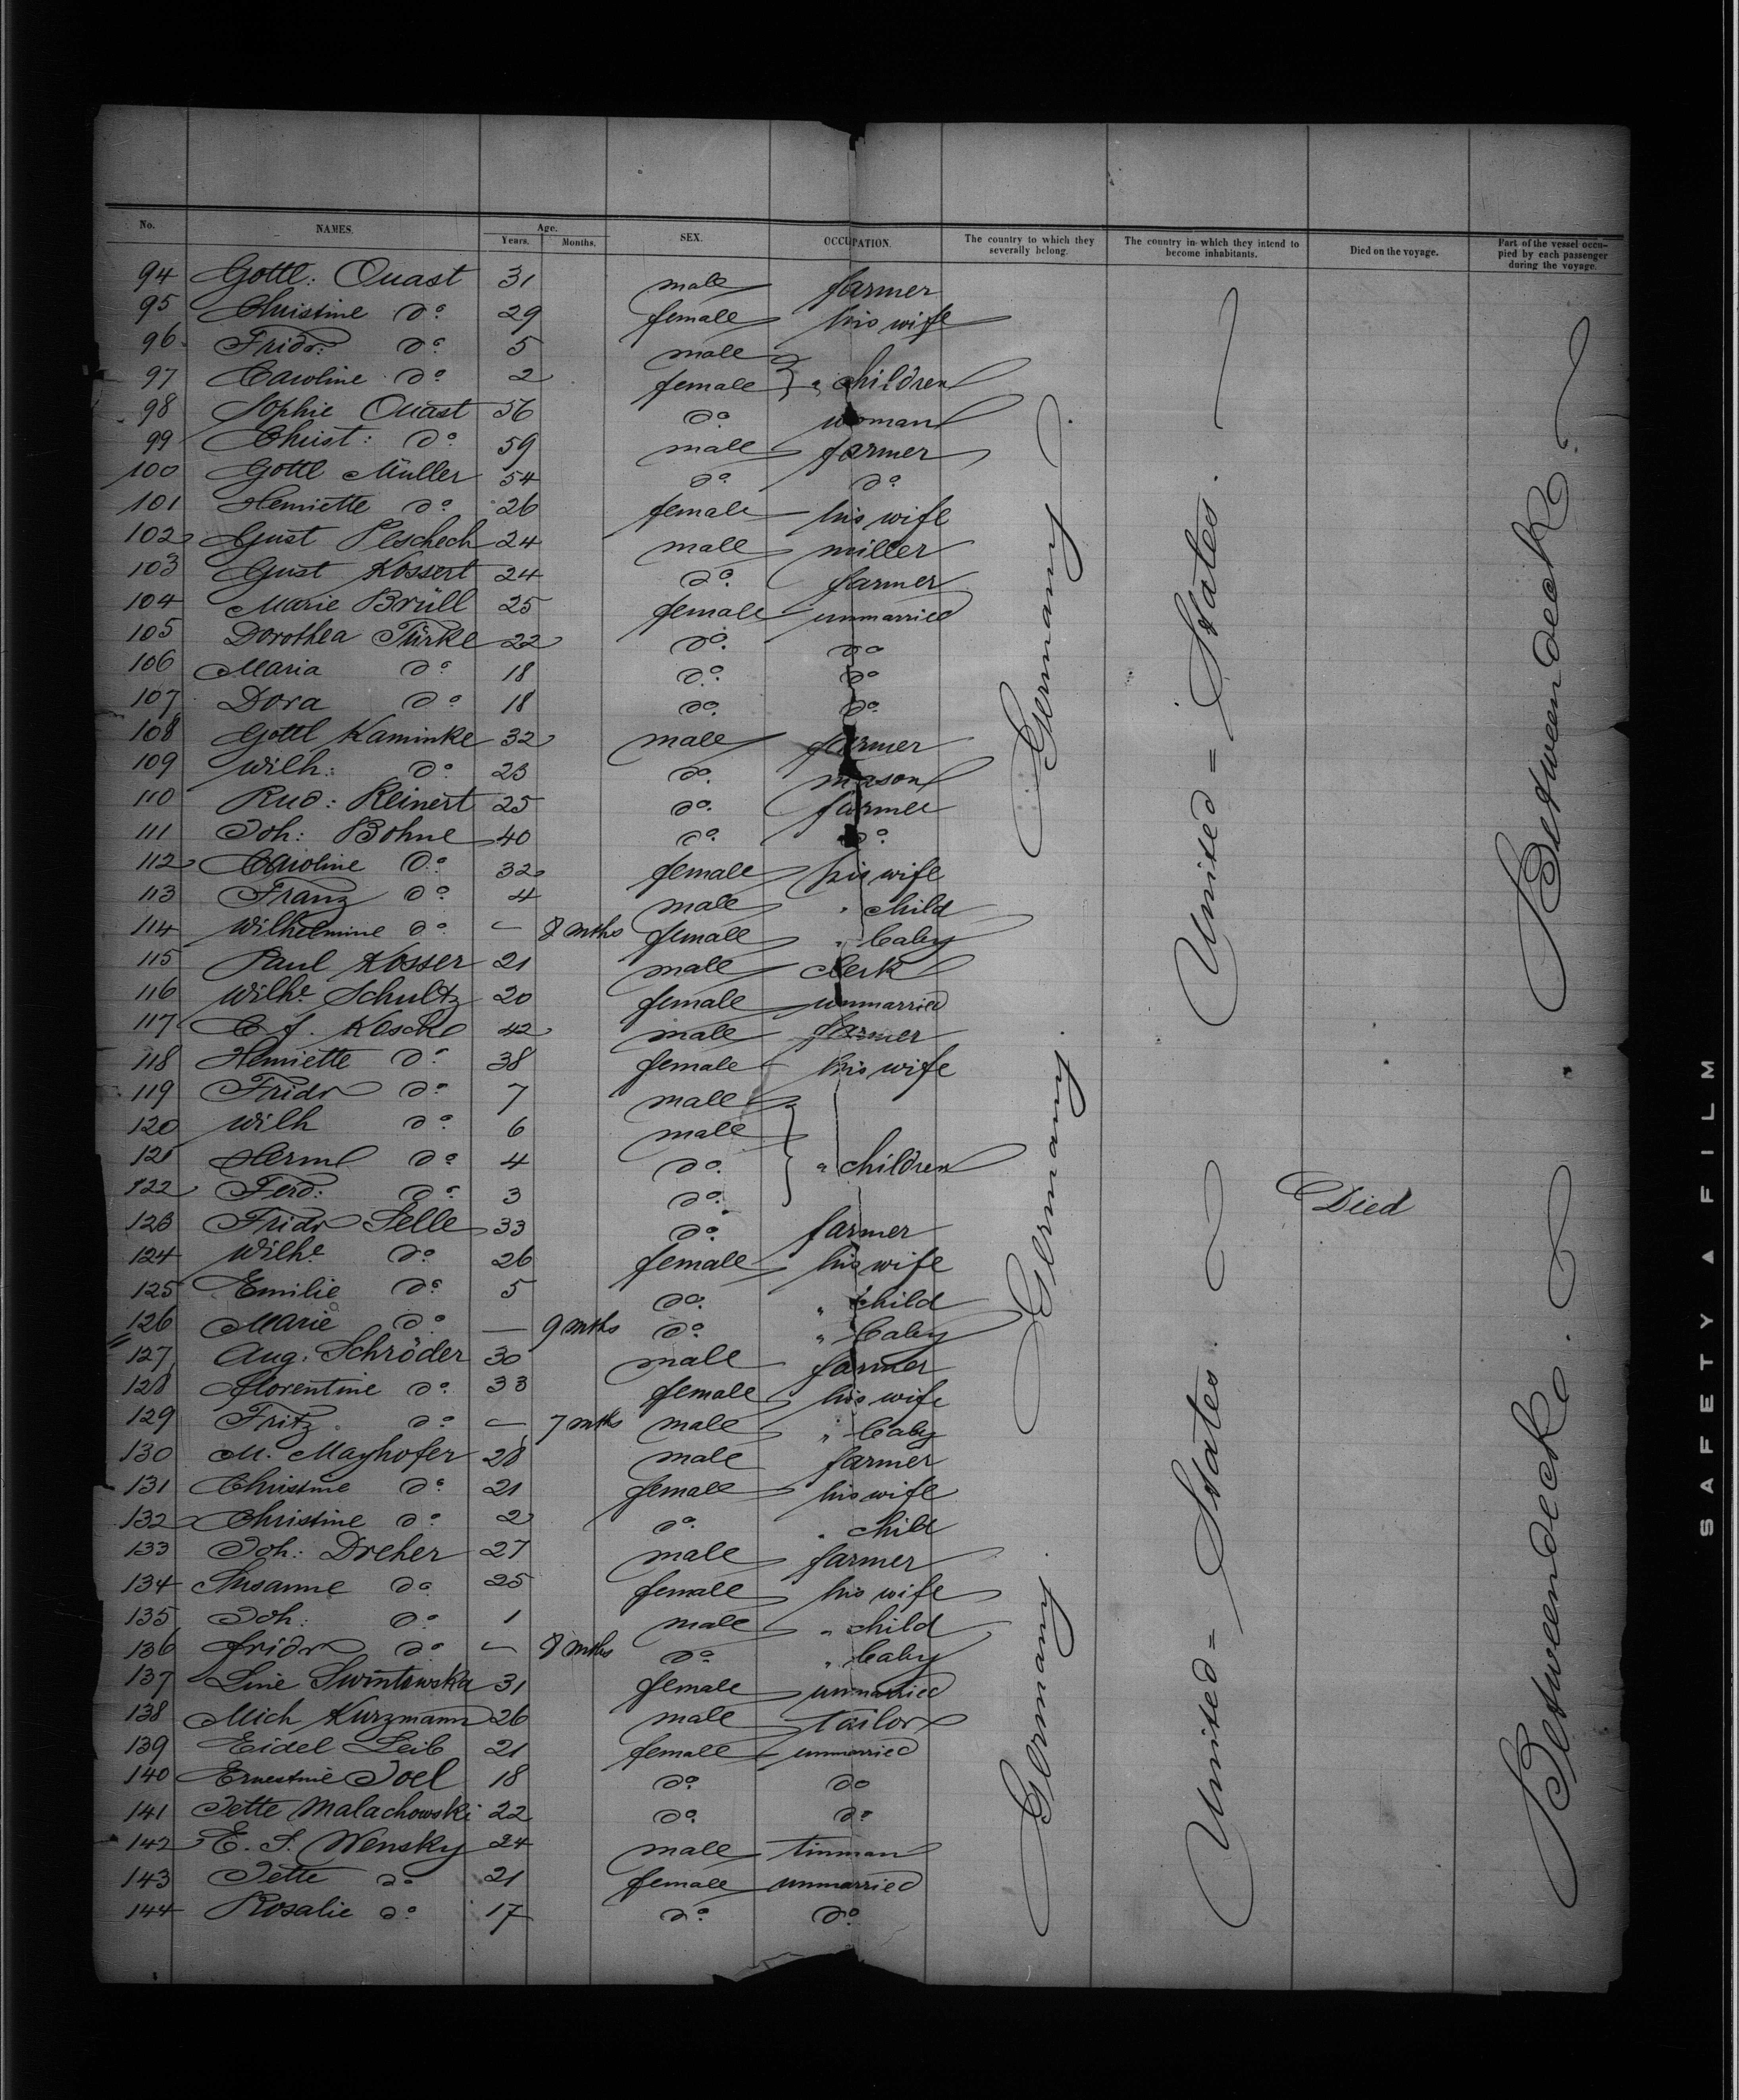 No. NAMES. Age. Years. Months. SEX. OCCUPATION. The country to which they severally belong. The country in which they intend to become inhabitants. Died on the voyage. Part of the vessel occupied by each passenger during the voyage.
94 Gottl: Quast 31 male farmer
95 Christine do 29 female his wife
96 Fridr: do 5 male
97 Caroline do 2 female } " children
98 Sophie Quast 56 do. woman
99 Christ: do 59 male farmer
100 Gottl Müller 54 do do
101 Henriette do 26 female his wife
102 Gust Peschech 24 male miller
103 Gust Kossert 24 do. farmer
104 Marie Brüll 25 female unmarried
105 Dorothea Türke 22 do. do
106 Maria do 18 do. do
107 Dora do 18 do. do
108 Gottl Kaminke 32 male farmer
109 Wilh: do 23 do. mason
110 Rud: Reinert 25 do. farmer
111 Joh: Bohne 40 do do
112 Caroline do 32 female his wife
113 Franz do 4 male " child
114 Wilhelmine do — 8 mths female " baby
115 Paul Kosser 21 male clerk
116 Wilhe Schultz 20 female unmarried
117 C. f. Koschl 42 male farmer
118 Henriette do 38 female his wife
119 Fridr do 7 male
120 Wilh do 6 male
121 Herm do 4 do. } " children
122 Ferd: do 3 do. Died
123 Fridr Selle 33 do. farmer
124 Wilhe do 26 female his wife
125 Emilie do 5 do. " child
126 Marie do — 9 mths do " baby
127 Aug. Schröder 30 male farmer
128 Florentine do 33 female his wife
129 Fritz do — 7 mths male " baby
130 M. Mayhofer 28 male farmer
131 Christine do 21 female his wife
132 Christine do 2 do. " child
133 Joh: Dreher 27 male farmer
134 Susanne do 25 female his wife
135 Joh: do 1 male " child
136 Fridr do — 8 mths do " baby
137 Line Swintowska 31 female unmarried
138 Mich Kurzmann 26 male tailor
139 Eidel Leib 21 female unmarried
140 Ernestine Joel 18 do do
141 Jette Malachowski 22 do do
142 E. S. Wensky 24 male tinman
143 Jette do 21 female unmarried
144 Rosalie do 17 do do
Germany
Germany
Germany
United = States.
United = States
Betweendeck
Betweendeck.
SAFETY ▲ FILM